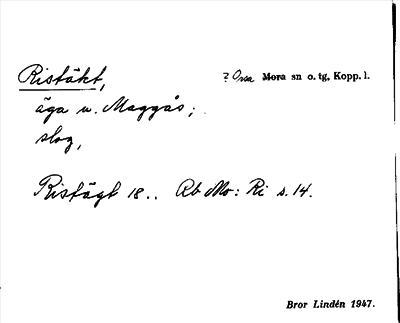 Ristäkt, ? Orsa Mora sn o. tg, Kopp. l.
äga u. Maggås;
slog,
Ristägt 18.. Rb Mo: Ri s. 14.
Bror Lindén 1947.